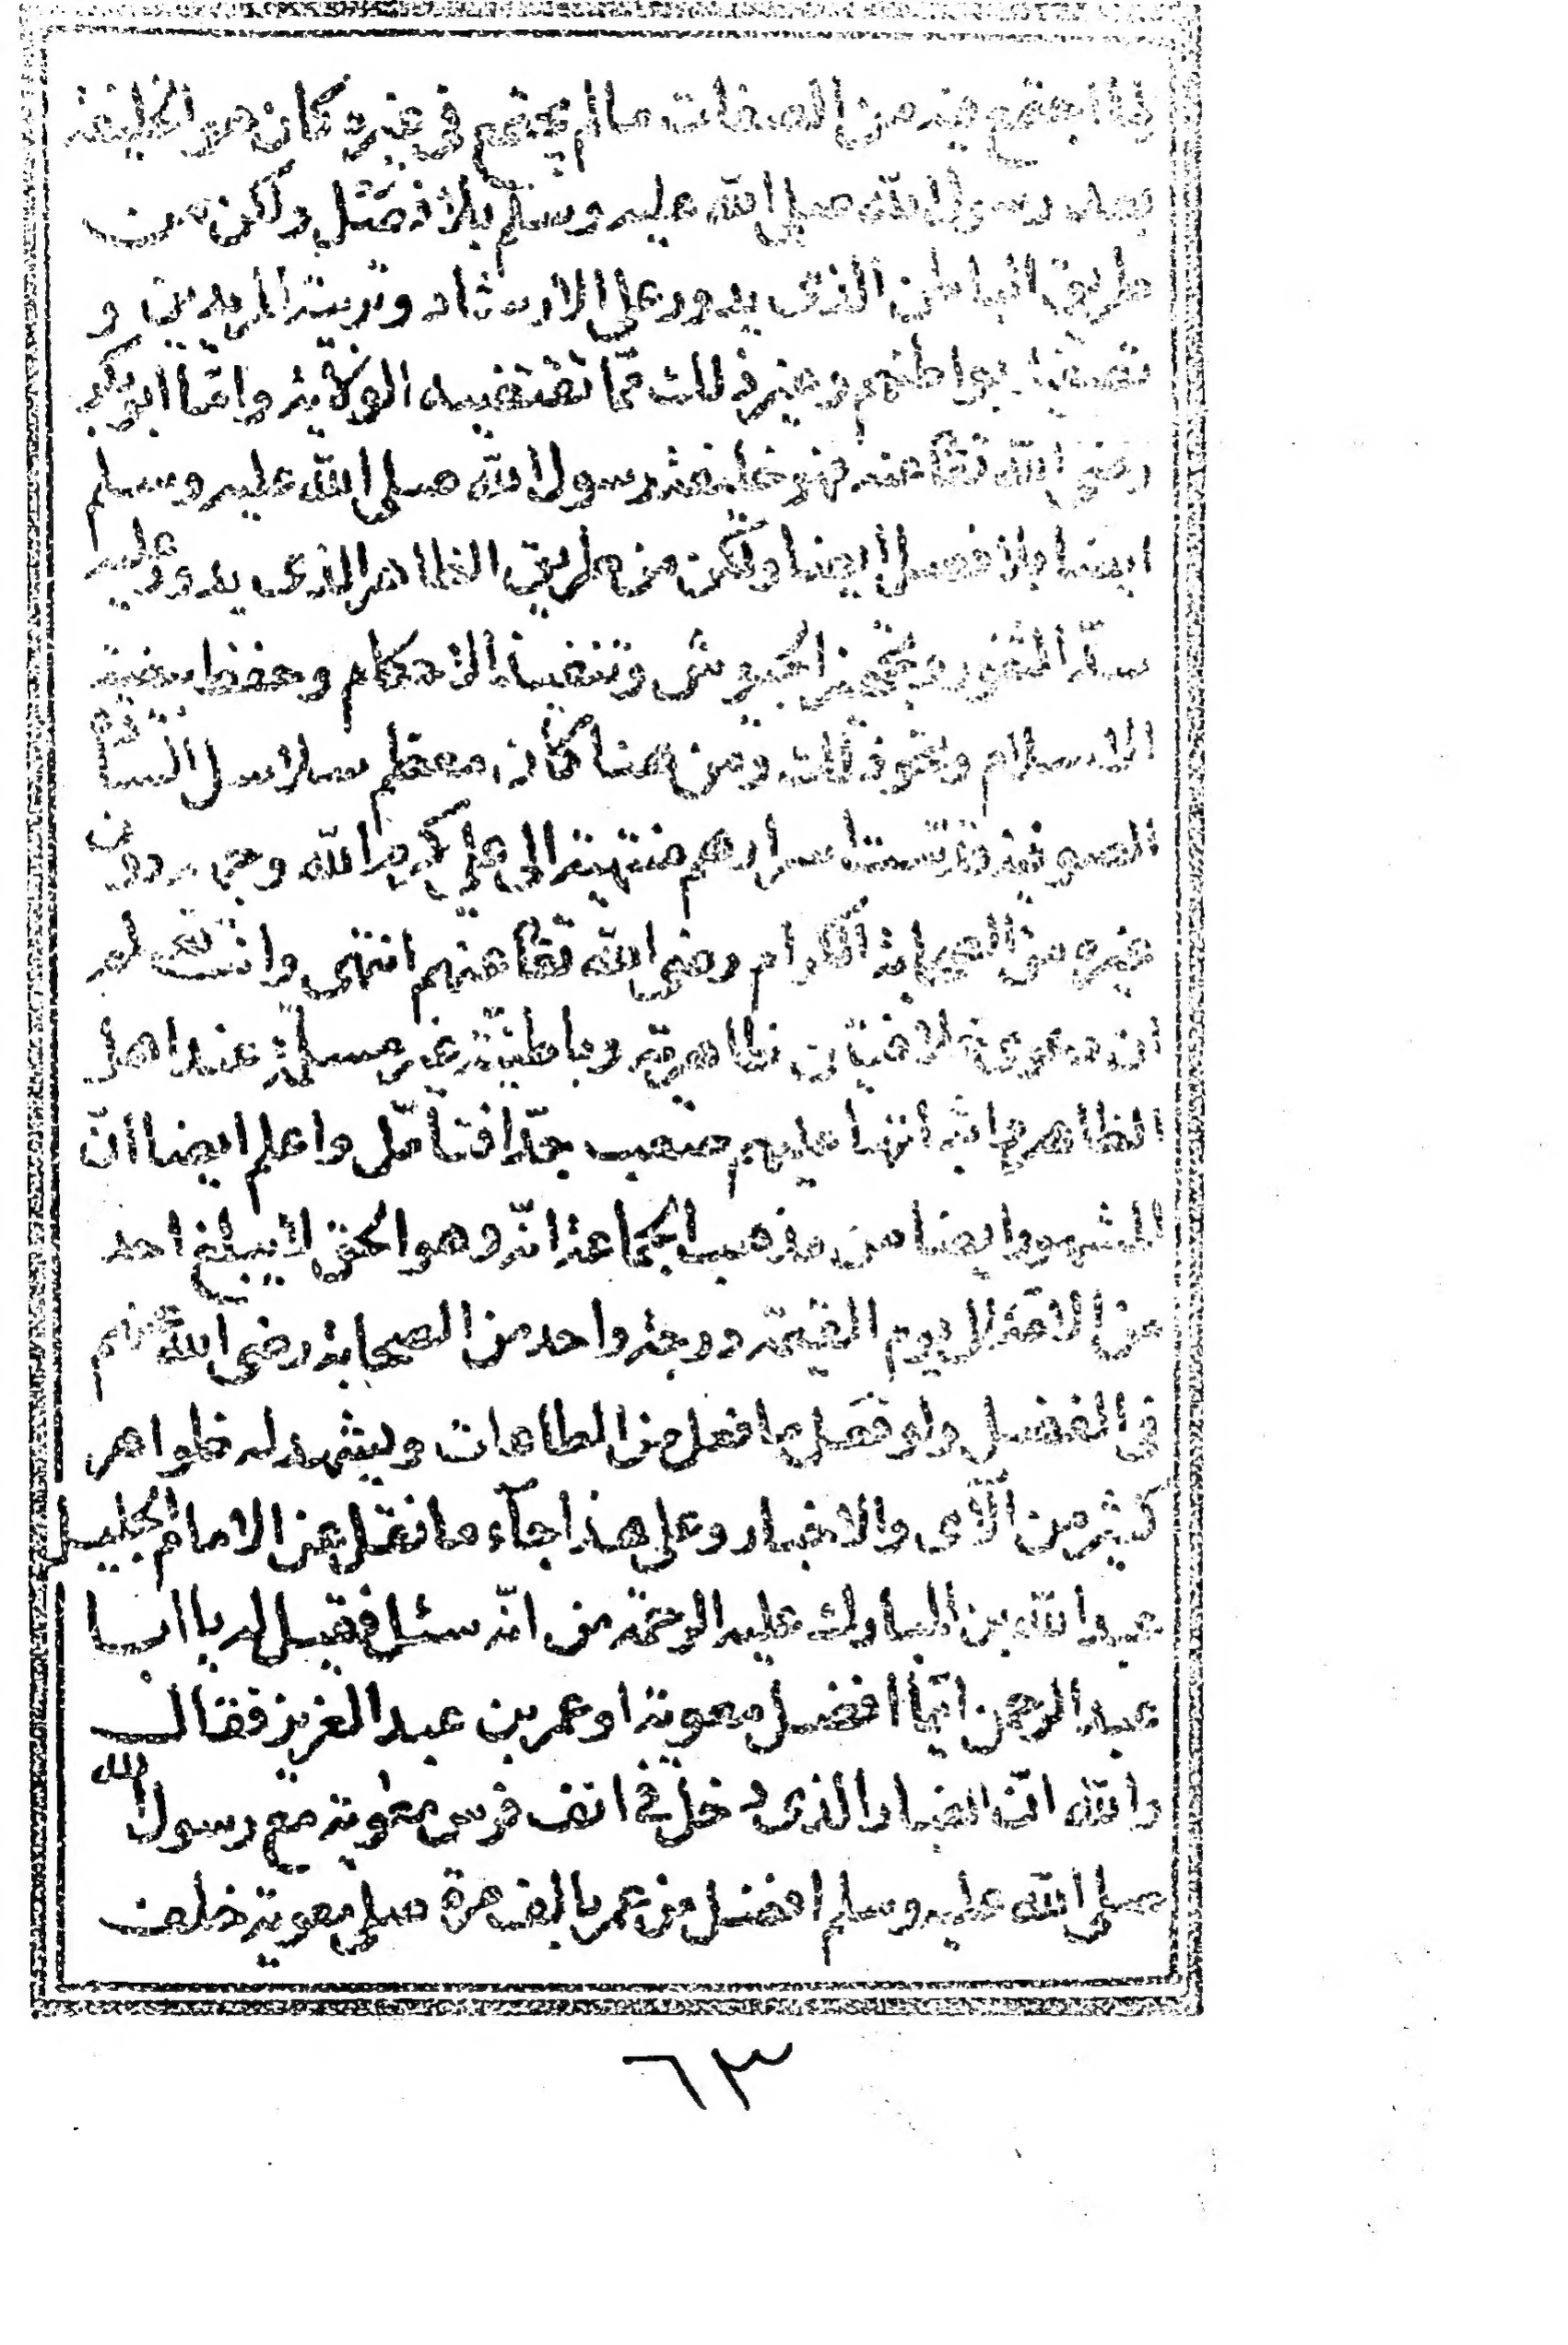 لما اجتمع فيه من الصفات ما لم يجتمع في غيره كان هو الخليفة
بعد رسول الله صلى الله عليه وسلم بلا فصل ولكن من
طريق الباطن الذى يدور على الارشاد وتربية المريدين و
تصفية بواطنهم وغير ذلك مما تقتضيه الولاية واما ابو بكر
رضى الله تعا عنه فهو خليفة رسول الله صلى الله عليه وسلم
ايضا بلا فصل ايضا ولكن من طريق الظاهر الذى يدور عليه
سد الثغور وتجهيز الجيوش وتنفيذ الاحكام وحفظ بيضة
الاسلام ونحو ذلك ومن هنا كان معظم سلاسل السادة
الصوفية قدست اسرارهم منتهية الى على كرم الله وجهه دون
غيره من الصحابة الكرام رضى الله تعا عنهم انتهى وانت تعلم
ان دعوى خلافتين ظاهرية وباطنية غير مسلم عند اهل
الظاهر واثباتها عليهم صعب جدّا فتأمّل واعلم ايضا انّ
المشهور ايضا من مذهب الجماعة انّه وهو الحق لا يبلغ احد
من الامة الى يوم القيمة درجة واحد من الصحابة رضى الله عنهم
فى الفضل ولو فعل ما فعل من الطاعات ويشهد له ظواهر
كثير من الآى والاخبار وعلى هذا جآء ما نقل عن الامام الجليل
عبد الله بن المبارك عليه الرحمة من انّه سئل فقيل له يا ابا
عبد الرحمن ايّما افضل معوية او عمر بن عبد العزيز فقال
والله انّ الغبار الذى دخل فى انف فرس معوية مع رسول الله
صلى الله عليه وسلم افضل من عمر بالف مرة صلى معوية خلف
٦٣